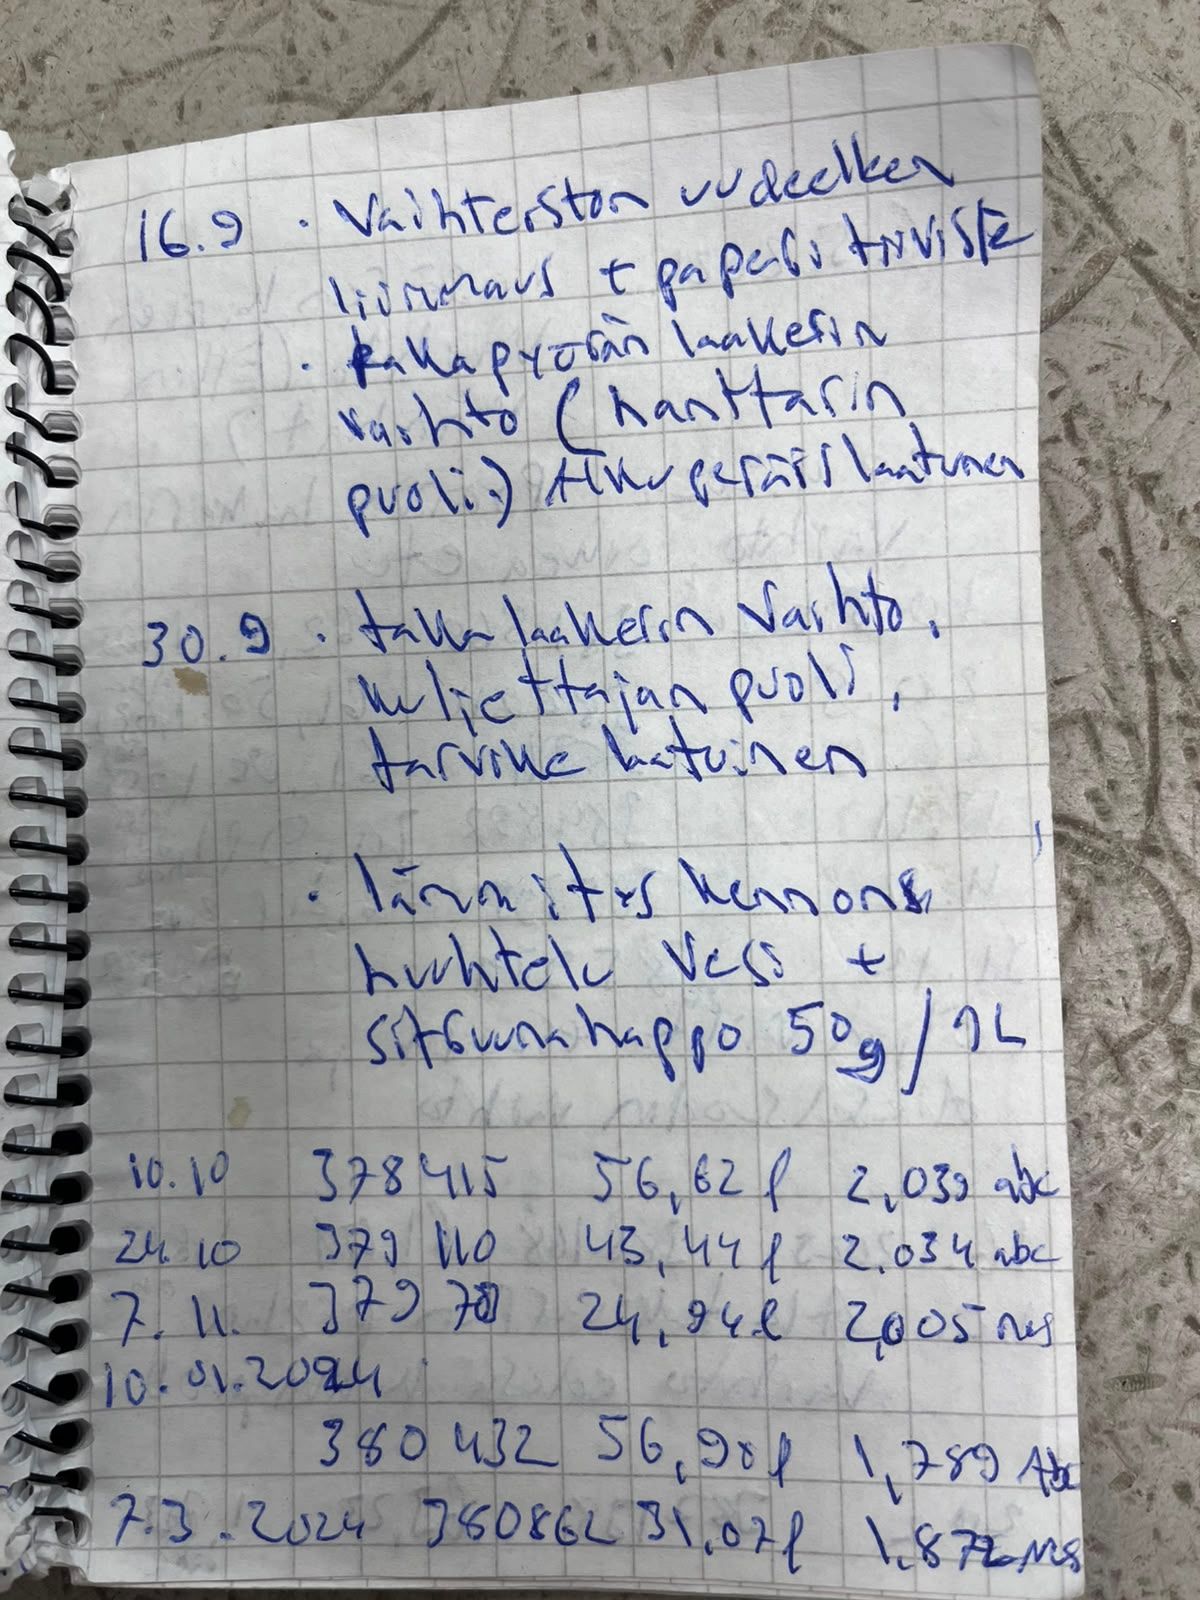 16.9 · Vaihteiston uudeelken
liimaus + paperi tiiviste
· takapyörän laakerin
vaihto (kanttarin
puoli.) Alkuperäislaatunen
30.9 · takalaakerin vaihto,
kuljettajan puoli,
tarvike laatuinen
· lämmitys kennon
huuhtelu vesi +
sitruunahappo 50g/1L
10.10 378415 56,62l 2,039 abc
24.10 379 110 43,44l 2.034 abc
7.11. 24,94l 2,005 nes
10.01.2024
380 432 56,98l 1,789 Abc
7.3.2024 380862 31,07l 1.872 nes